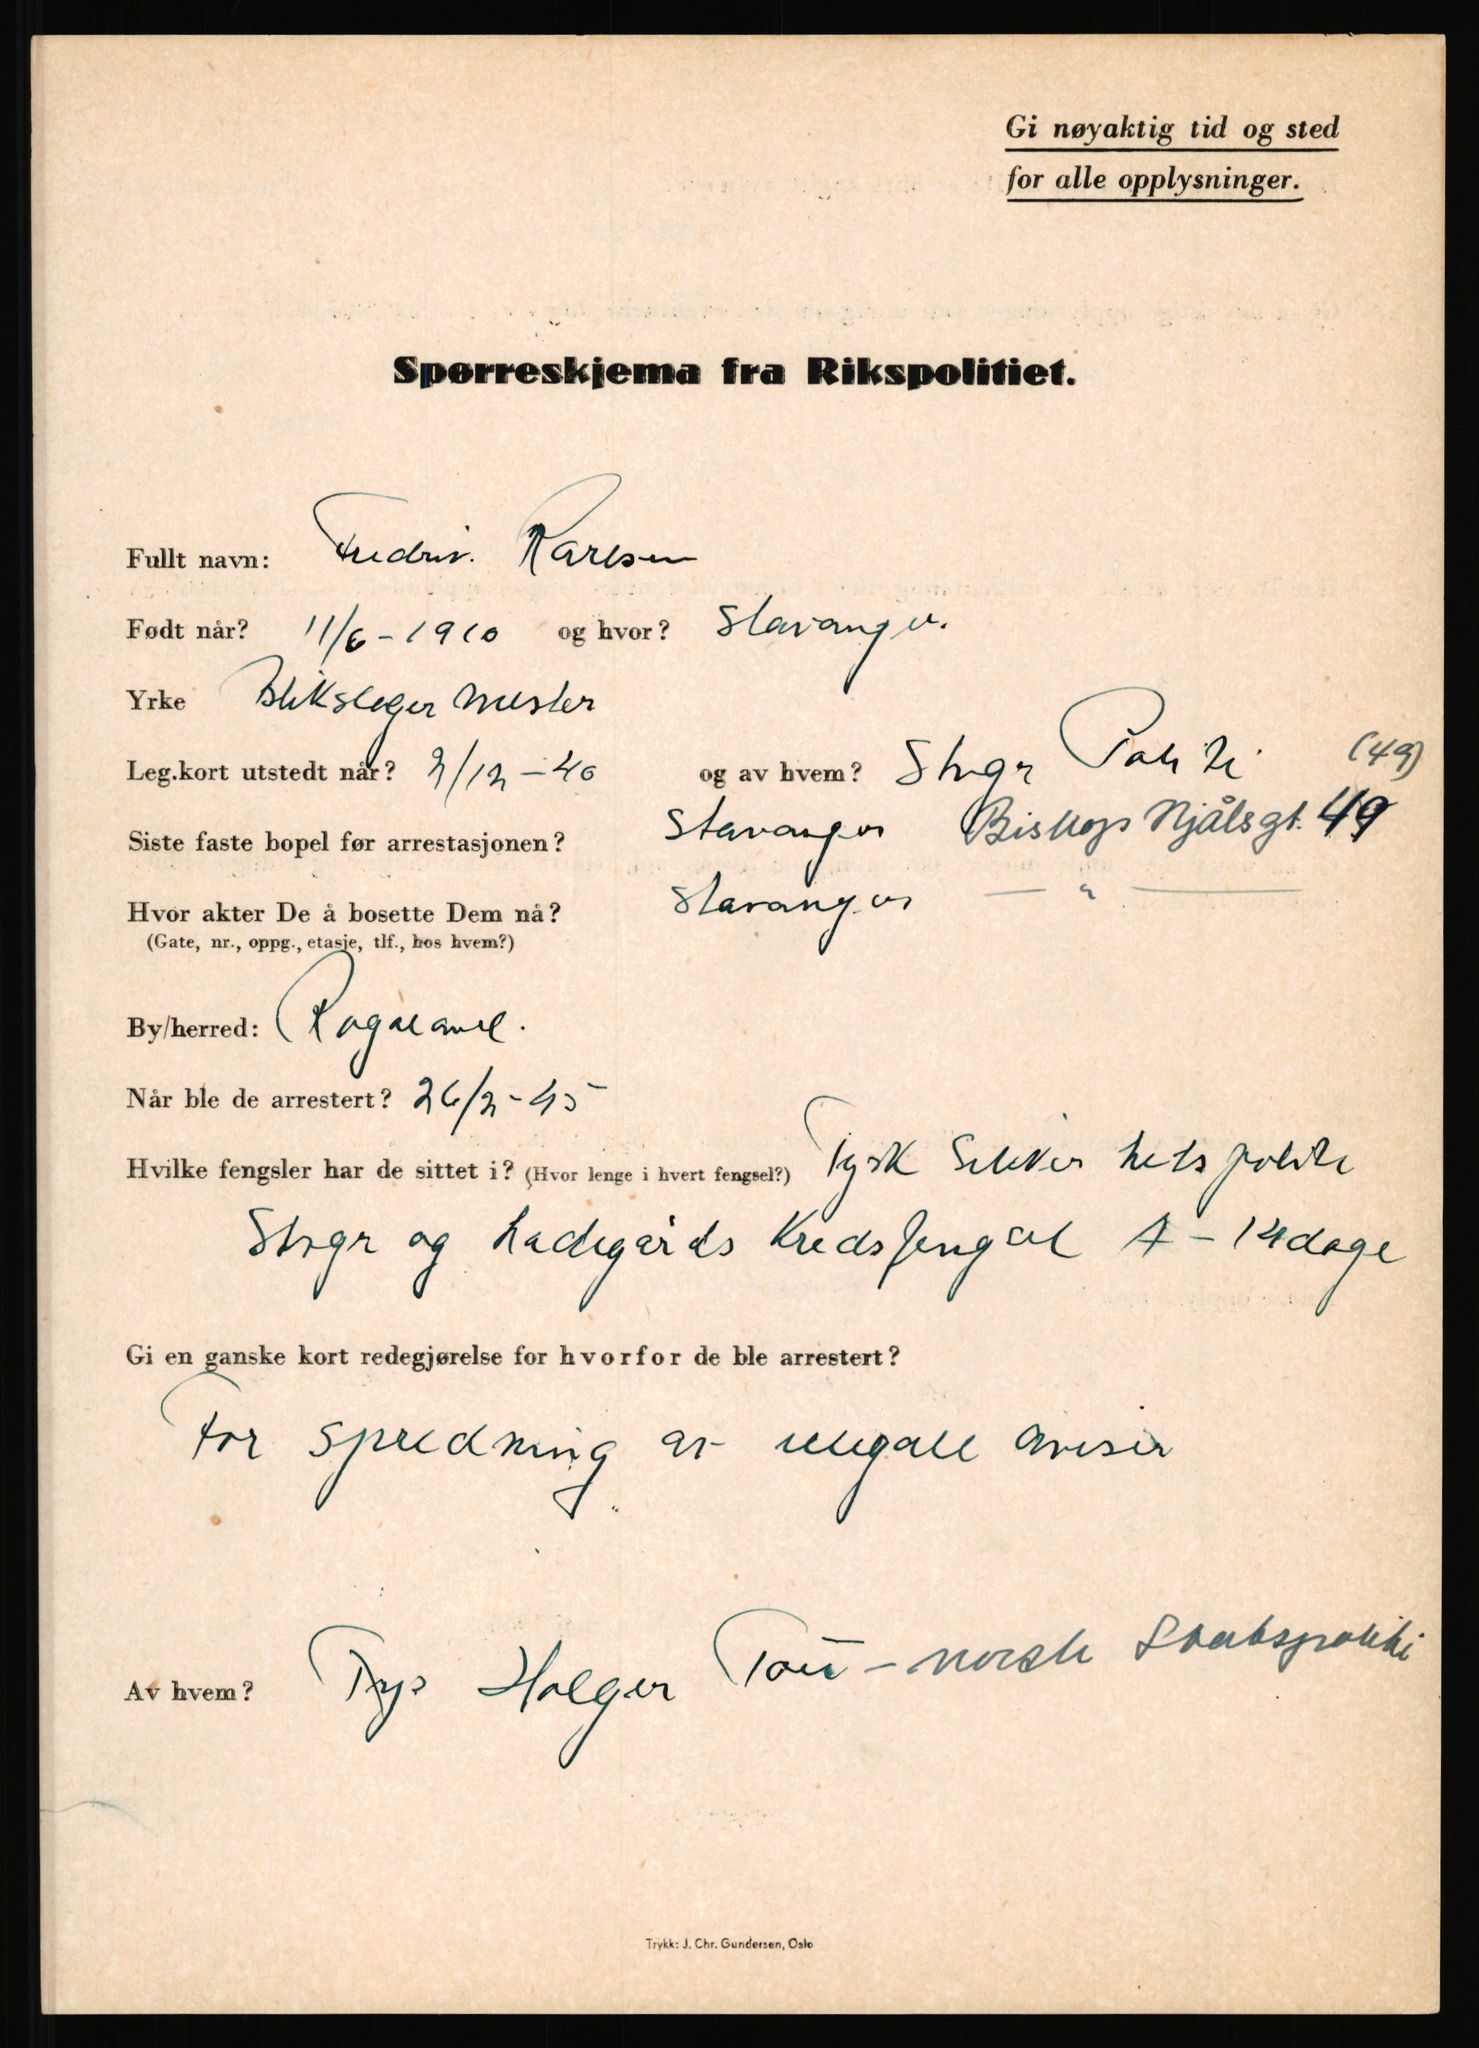 Gi nøyaktig tid og sted
for alle opplysninger.
Spørreskjema fra Rikspolitiet.
Fullt navn: Fredrik Karlsen
Født når? 11/6-1910 og hvor? Stavanger.
Yrke Blikslager mester
Leg.kort utstedt når? 2/12-40 og av hvem? Stvgr Politi (49)
Siste faste bopel før arrestasjonen? Stavanger Biskop Njålsgt. 49
Hvor akter De å bosette Dem nå? Stavanger — " —
(Gate, nr., oppg., etasje, tlf., hos hvem?)
By/herred: Rogaland.
Når ble de arrestert? 26/2-45
Hvilke fengsler har de sittet i? (Hvor lenge i hvert fengsel?) Tysk Sikkerhetspoliti
Stvgr og Ladegårds Kredsfengsel - 14 dage
Gi en ganske kort redegjørelse for hvorfor de ble arrestert?
For spredning av illegale aviser
Av hvem? Holger Tou - norsk Statspoliti
Trykk: J. Chr. Gundersen, Oslo